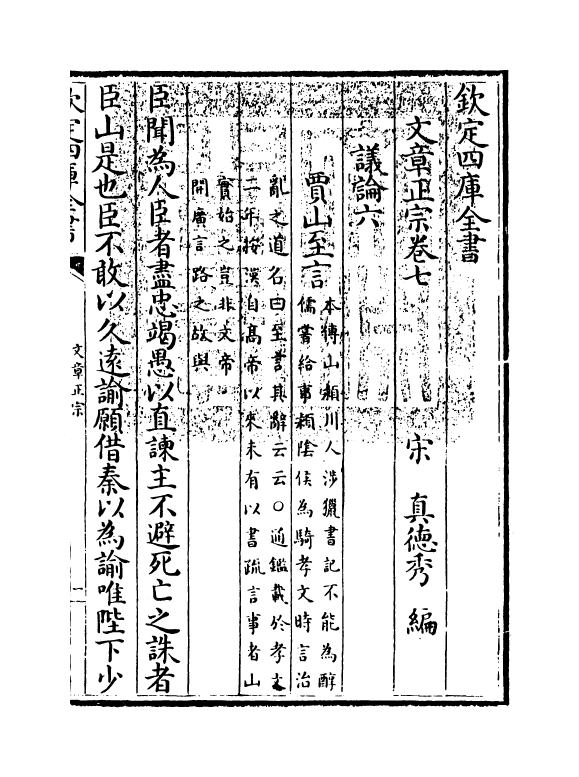 欽定四庫全書
文章正宗卷七
宋 真德秀 編
議論六
賈山至言
本傳山潁川人涉獵書記不能為醇
儒嘗給事潁陰侯為騎孝文時言治
亂之道名曰至言其辭云云○通鑑載於孝文
二年按漢自髙帝以來未有以書疏言事者山
實始之豈非文帝
開廣言路之故與
臣聞為人臣者盡忠竭愚以直諫主不避死亡之誅者
臣山是也臣不敢以久遠諭願借秦以為諭唯陛下少
欽定四庫全書
文章正宗
一